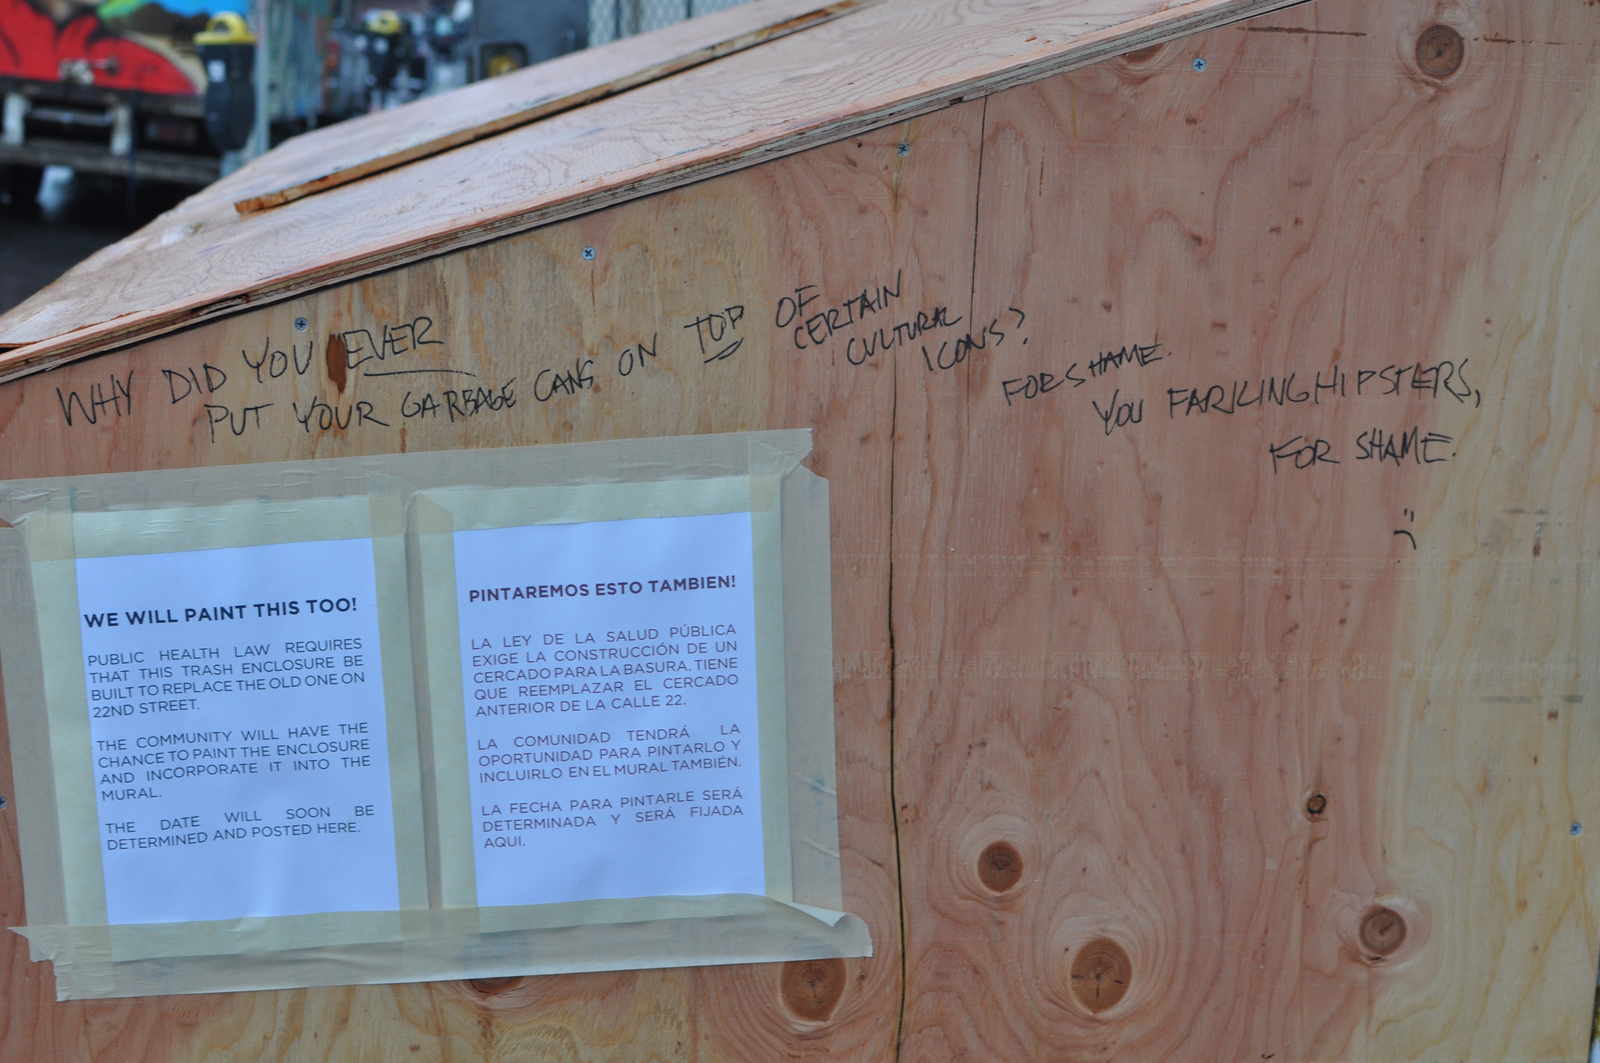 WHY DID YOU EVER
PUT YOUR GARBAGE CANS ON TOP OF
CERTAIN
CULTURAL
ICONS?
FOR SHAME.
YOU FARKING HIPSTERS,
FOR SHAME.
:(
WE WILL PAINT THIS TOO!
PUBLIC HEALTH LAW REQUIRES
THAT THIS TRASH ENCLOSURE BE
BUILT TO REPLACE THE OLD ONE ON
22ND STREET.
THE COMMUNITY WILL HAVE THE
CHANCE TO PAINT THE ENCLOSURE
AND INCORPORATE IT INTO THE
MURAL.
THE DATE WILL SOON BE
DETERMINED AND POSTED HERE.
PINTAREMOS ESTO TAMBIEN!
LA LEY DE LA SALUD PÚBLICA
EXIGE LA CONSTRUCCIÓN DE UN
CERCADO PARA LA BASURA. TIENE
QUE REEMPLAZAR EL CERCADO
ANTERIOR DE LA CALLE 22.
LA COMUNIDAD TENDRÁ LA
OPORTUNIDAD PARA PINTARLO Y
INCLUIRLO EN EL MURAL TAMBIÉN.
LA FECHA PARA PINTARLE SERÁ
DETERMINADA Y SERÁ FIJADA
AQUI.